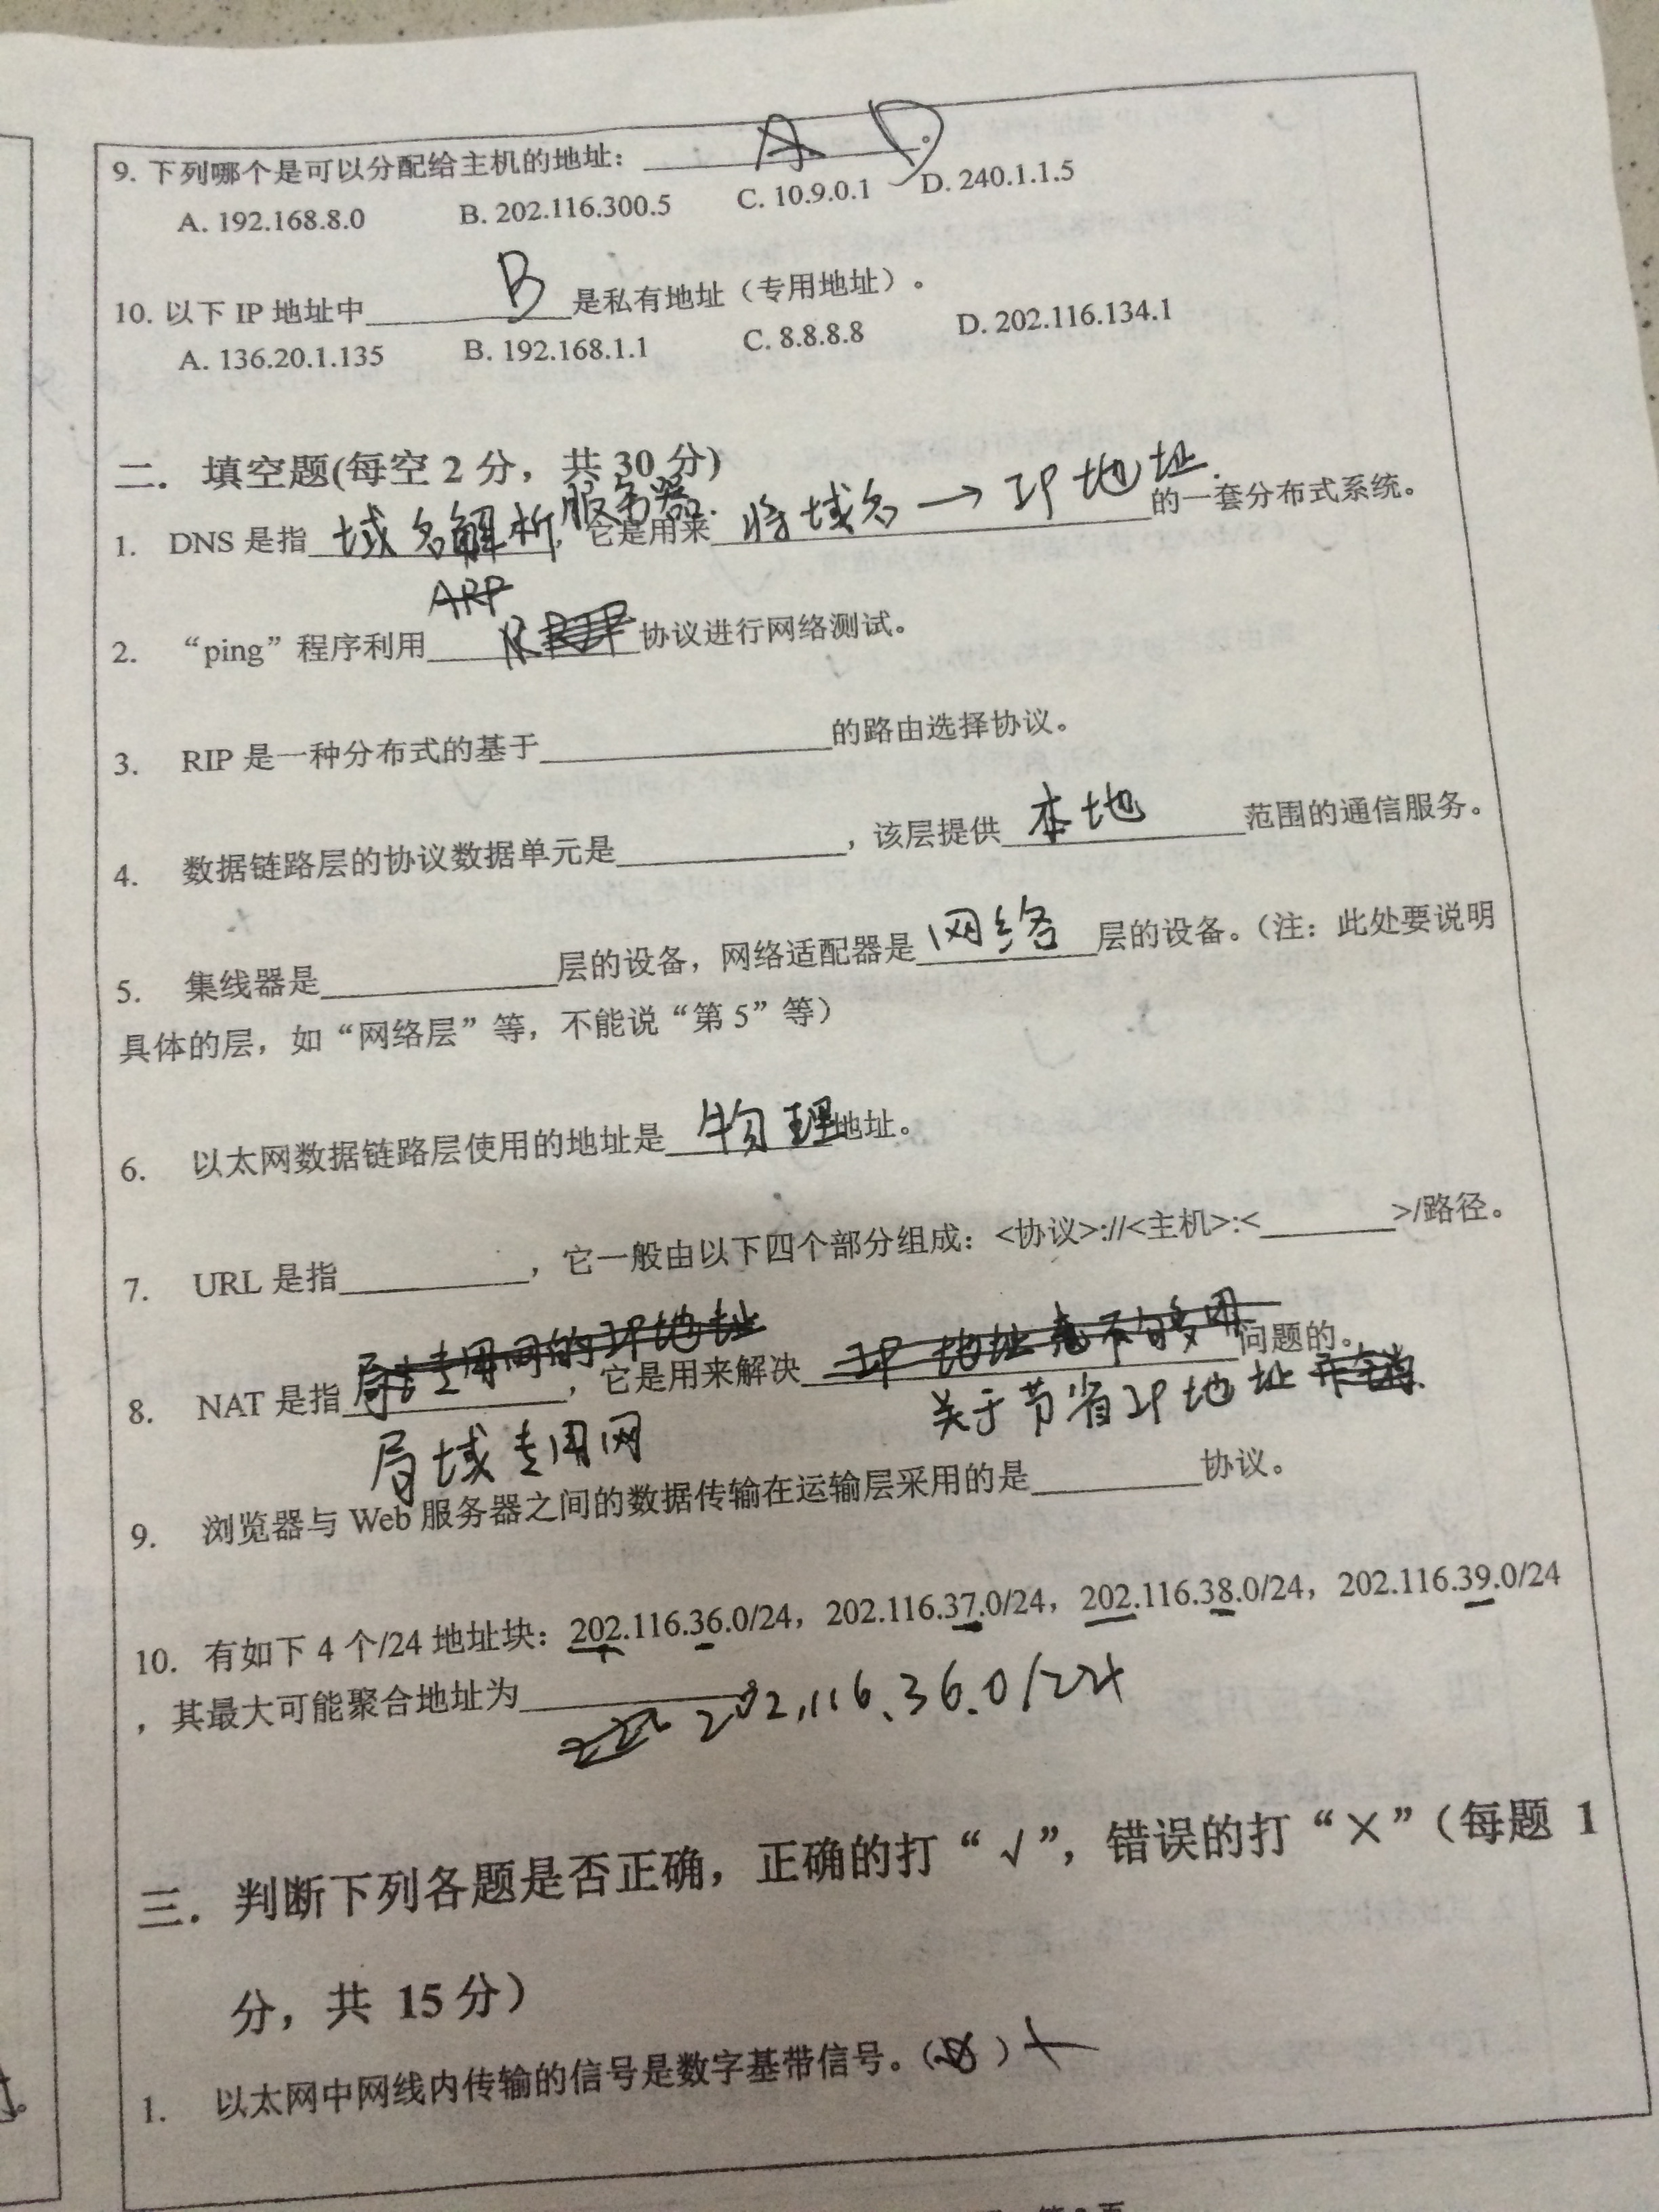 9. 下列哪个是可以分配给主机的地址：A D。
A. 192.168.8.0 B. 202.116.300.5 C. 10.9.0.1 D. 240.1.1.5
10. 以下 IP 地址中 B 是私有地址（专用地址）。
A. 136.20.1.135 B. 192.168.1.1 C. 8.8.8.8 D. 202.116.134.1
二. 填空题(每空 2 分，共 30 分)
1. DNS 是指域名解析服务器.，它是用来将域名→IP地址.的一套分布式系统。
ARP
2. “ping”程序利用 协议进行网络测试。
3. RIP 是一种分布式的基于 的路由选择协议。
4. 数据链路层的协议数据单元是 ，该层提供本地范围的通信服务。
5. 集线器是 层的设备，网络适配器是网络层的设备。（注：此处要说明
具体的层，如“网络层”等，不能说“第 5”等）
6. 以太网数据链路层使用的地址是物理地址。
7. URL 是指 ，它一般由以下四个部分组成：<协议>://<主机>:< >/路径。
8. NAT 是指 专用网的IP地址，它是用来解决IP地址 不够用问题的。
局域专用网 关于节省IP地址
9. 浏览器与 Web 服务器之间的数据传输在运输层采用的是 协议。
10. 有如下 4 个/24 地址块：202.116.36.0/24，202.116.37.0/24，202.116.38.0/24，202.116.39.0/24
，其最大可能聚合地址为
202.116.36.0/24
三. 判断下列各题是否正确，正确的打“√”，错误的打“×”（每题 1
分，共 15 分）
1. 以太网中网线内传输的信号是数字基带信号。（ ）×